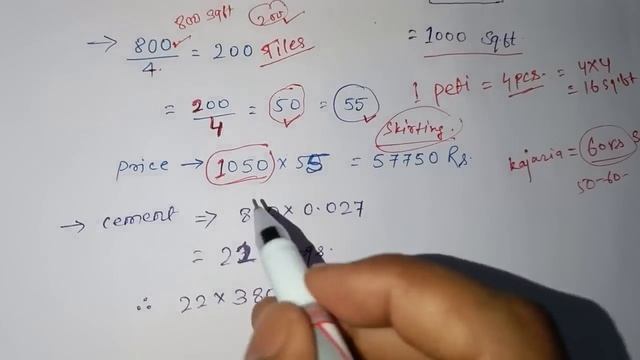 800 sqft 200
→ 800/4 = 200 Tiles
= 1000 Sqft.
= 200/4 = 50 = 55
1 peti = 4pcs. = 4×4
= 16 Sqft
Skirting.
price → 1050 × 55 = 57750 Rs.
kajaria = 60rs
50-60-
→ cement ⇒ 800 × 0.027
= 22
∴ 22 × 38